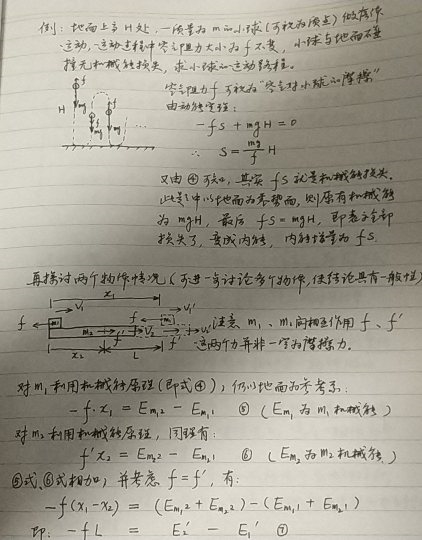 例：地面上高H处，一质量为m的小球（可视为质点）做落体
运动，运动过程中空气阻力大小为f不变，小球与地面不碰
撞无机械能损失，求小球的运动路程。
空气阻力f可视为“空气对小球的摩擦”
由动能定理：
-fS + mgH = 0
∴ S = mg/f H
又由④可知，其实fS就是机械能损失。
此题中以地面为零势面，则原有机械能
为mgH，最后fS = mgH，即表示全部
损失了，变成内能，内能增量为fS.
H f mg f mg f mg
再探讨两个物体情况（可进一步讨论多个物体，使结论具有一般性）
x₁
f m₁ V₁ m₂ f' V₂ f m₁ V₁' V₂' f'
x₂ L
注意 m₁、m₂间相互作用 f、f'
这两个力并非一定为摩擦力。
对m₁利用机械能原理（即式④），仍以地面为参考系：
-f·x₁ = Em₁2 - Em₁1 ⑤ （Em₁为m₁机械能）
对m₂利用机械能原理，同理有：
f'x₂ = Em₂2 - Em₂1 ⑥ （Em₂为m₂机械能）
⑤式、⑥式相加，并考虑 f = f'，有：
-f(x₁-x₂) = (Em₁2 + Em₂2) - (Em₁1 + Em₂1)
即：-fL = E₂' - E₁' ⑦